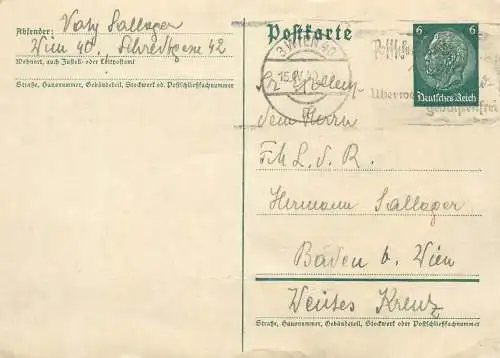 Absender: Vaty Sallager
Wien 40., Schredtgasse 42
Wohnort, auch Zustell- oder Leitpostamt
Straße, Hausnummer, Gebäudeteil, Stockwerk od. Postschließfachnummer
Postkarte
6 6
Deutsches Reich
3 WIEN 40
15.
Überwei
gebührenfrei
dem Herrn
F.M.L. d. R.
Hermann Sallager
Baden b. Wien
Weißes Kreuz
Straße, Hausnummer, Gebäudeteil, Stockwerk oder Postschließfachnummer